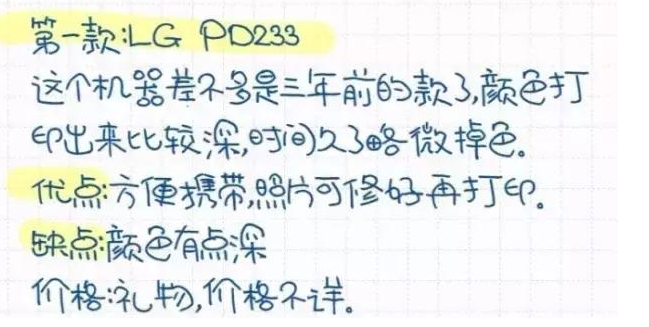 第一款:LG PD233
这个机器差不多是三年前的款了,颜色打
印出来比较深,时间久了略微掉色。
优点:方便携带,照片可修好再打印。
缺点:颜色有点深
价格:礼物,价格不详。